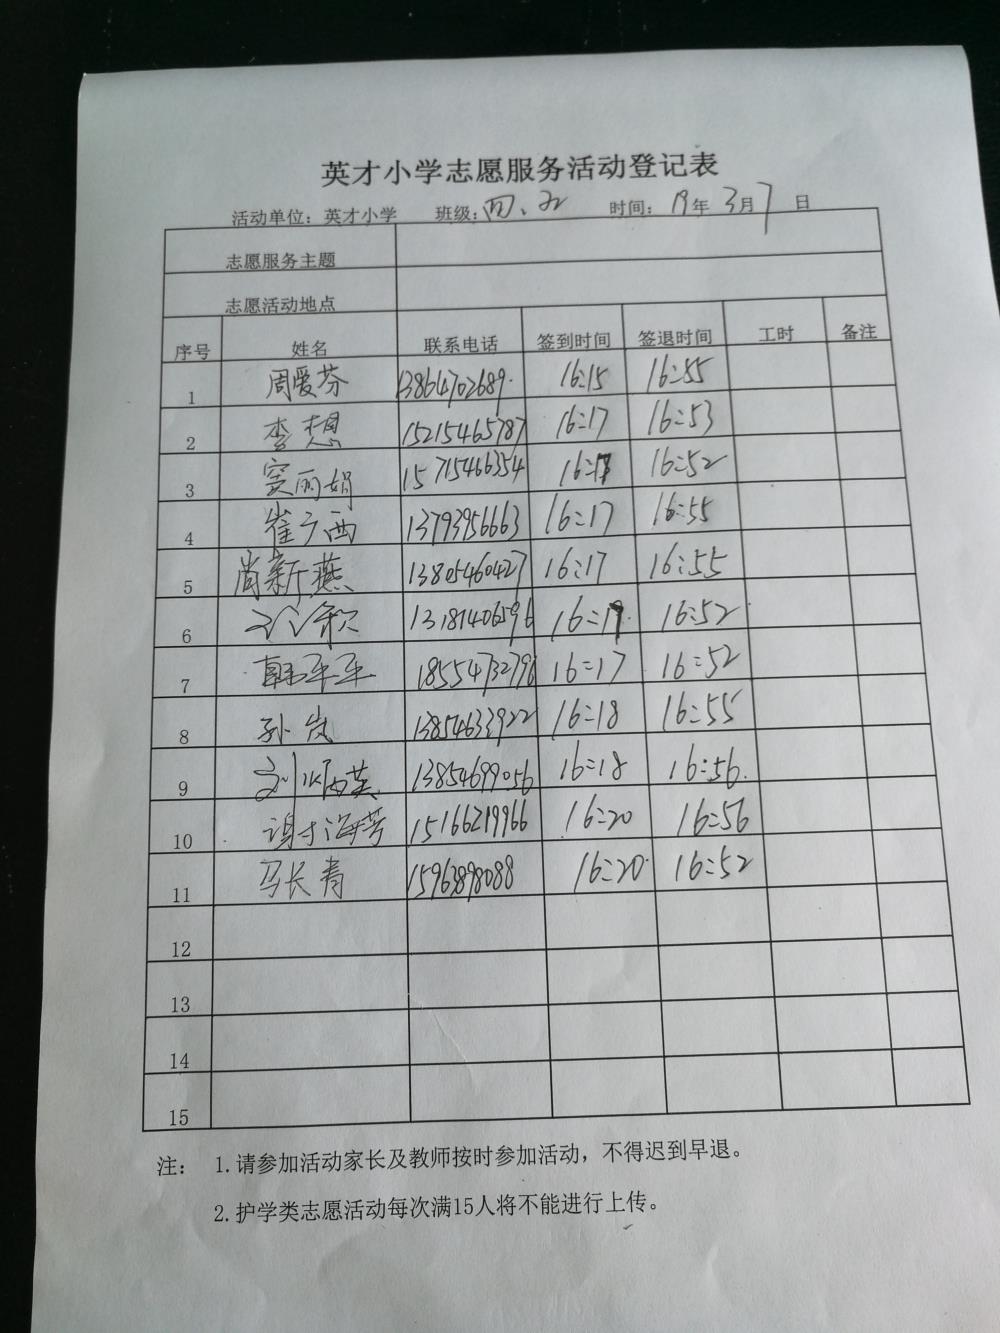 英才小学志愿服务活动登记表
活动单位：英才小学 班级：四、五 时间：19年3月7日
志愿服务主题
志愿活动地点
序号 姓名 联系电话 签到时间 签退时间 工时 备注
1 周爱芬 13864702689 16:15 16:55
2 李想 15215465787 16:17 16:53
3 窦丽娟 15715466354 16:17 16:52
4 崔广西 13793956663 16:17 16:55
5 尚新燕 13805460427 16:17 16:55
6 13181406596 16:52
7 韩平平 1855473279 16:17 16:52
8 孙岚 13854633922 16:18 16:55
9 刘炳英 13854699056 16:18 16:56
10 谢海芳 15166219966 16:20 16:56
11 马长青 15963898088 16:20 16:52
12
13
14
15
注： 1.请参加活动家长及教师按时参加活动，不得迟到早退。
2.护学类志愿活动每次满15人将不能进行上传。